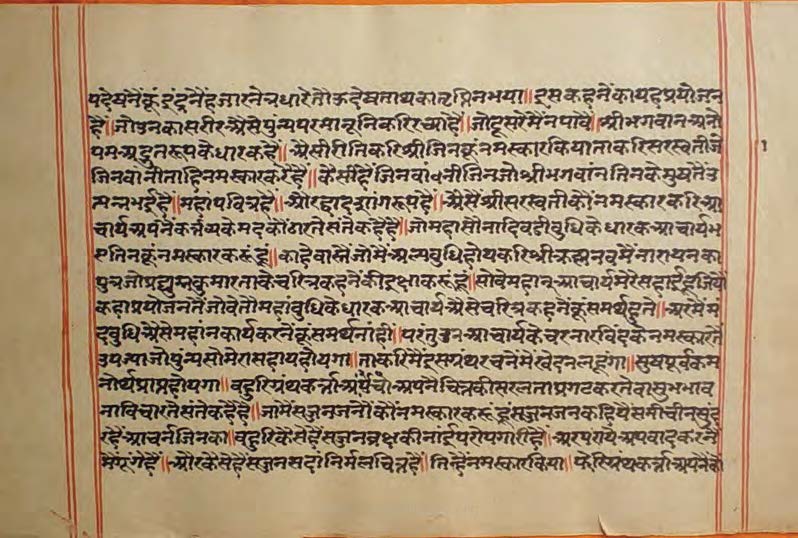 पदेषनैंकूं इंद्रनैं हजारनेत्रधारे तौऊ देषताथका तृप्ति न भया॥ इस कहनैं का यह प्रयोजन
है॥ जो उनका सरीर असे पुंन्य परमानूनि करि रच्यो है॥ जो दूसरे मैं न पावै॥ श्री भगवान अनो
पम अद्भुतरूप के धारक है॥ असी रीति करि श्री जिनकूं नमस्कार किया ता करि सरस्वती जे
जिनवानी ताहि नमस्कार करै हैं॥ कैसी है जिनवांनी जिन जो श्री भगवांन तिनके मुषतैं उ
त्पन्न भई है॥ महा पवित्र है॥ और द्वादशांगरूप है॥ असें श्री सरस्वती कौं नमस्कार करि आ
चार्य अपनैं कर्त्तव्य के मद कौं टारते संते कहै हैं॥ जो महासेनादि बडी बुधि के धारक आचार्य भ
ए तिनकूं नमस्कार करूं हूं॥ काहे वास्तैं जो मैं अल्प बुधि होय करि श्री कृष्ण नवमैं नारायन का
पुत्र जो प्रद्युम्नकुमार ता के चरित्र कहनैं की इक्षा करूं हूं॥ सो वे महान आचार्य मेरे सहाई हूजियौ
कहा प्रयोजन तैं जो वे तौ महां बुधि के धारक आचार्य असे चरित्र कहनैंकूं समर्थ हुते॥ अर मैं मं
द बुधि असे महान कार्य करनैंकूं समर्थ नांही॥ परंतु उन आचार्य के चरनारविंद के नमस्कार तैं
उपज्या जो पुंन्य सो मेरा सहाय होयगा॥ ता करि मैं इस ग्रंथ रचनें मैं षेद न लहूंगा॥ सुष पूर्वक म
नोर्थ प्राप्त होयगा॥ बहुरि ग्रंथकर्त्ता अपने चित्त की सरलता प्रगट करते वा सुभ भाव
ना विचारते संते कहै हैं॥ जो मैं सज्जन जनों कौं नमस्कार करूं हूं सज्जन जन कहिये समीचीन सुंद
र है आचर्न जिनका॥ बहुरि कैसे हैं सज्जन व्रक्ष की नांई परोपगारी है॥ अर पराये अपवाद करनैं
मैं गूंगे हैं॥ और कैसे हैं सज्जन सदां निर्मल चित्त है॥ तिन्हैं नमस्कार किया॥ फेरि ग्रंथकर्त्ता अपनैं कौ
१